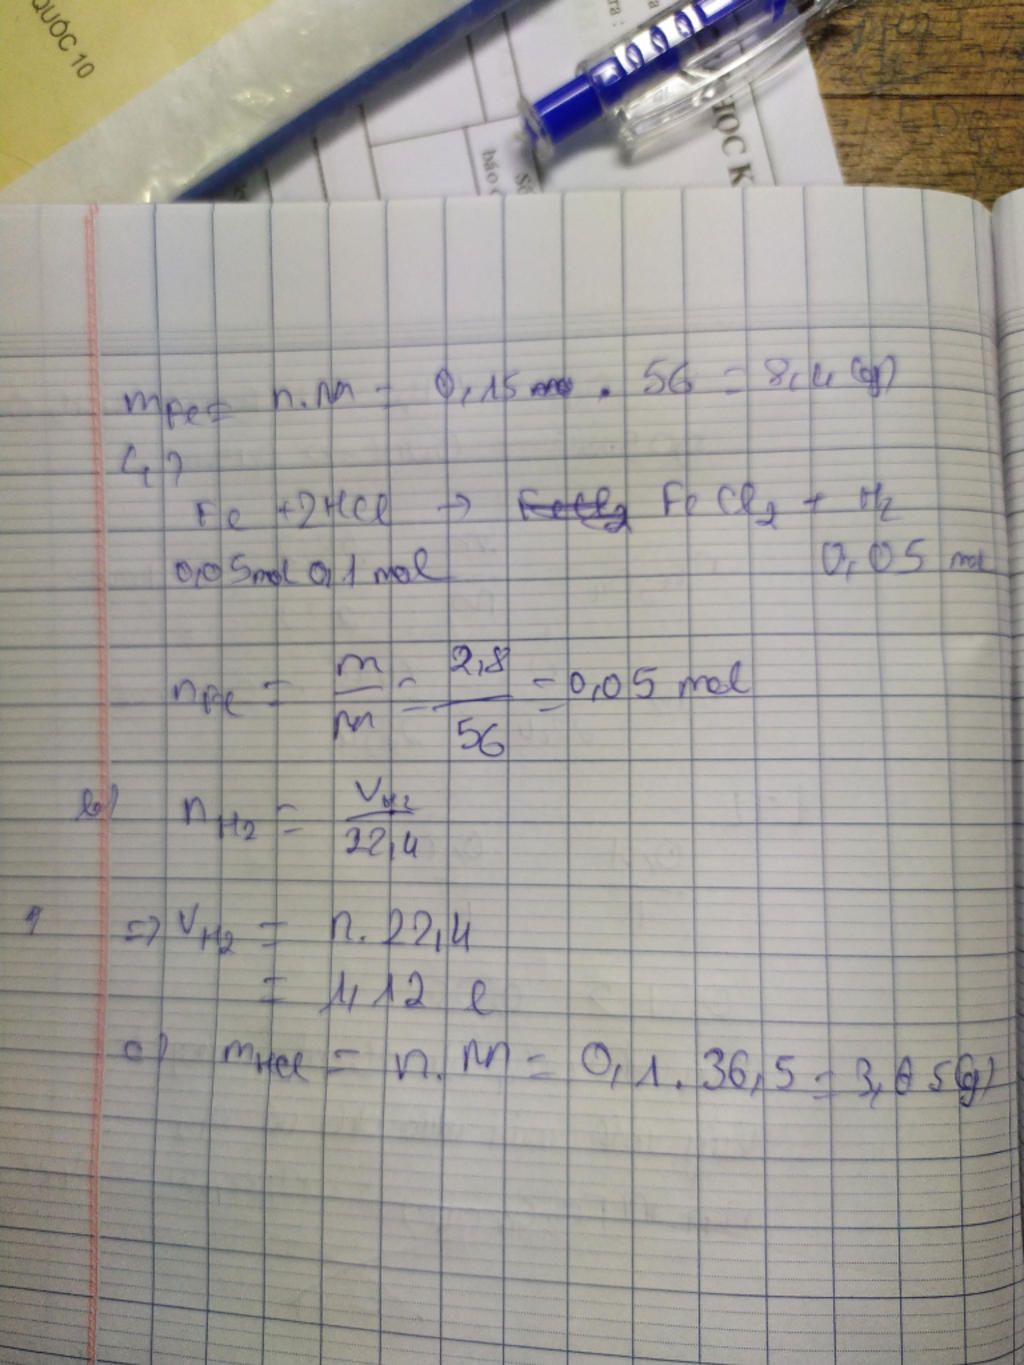 QUỐC 10
HỌC K
báo c
m Fe = n.M = 0,15 . 56 = 8,4 (g)
4)
Fe + 2HCl → FeCl2 FeCl2 + H2
0,05mol 0,1 mol 0,05 mol
nFe = m/M = 2,8/56 = 0,05 mol
b) nH2 = VH2/22,4
=> VH2 = n. 22,4
= 1,12 l
c) mHCl = n. M = 0,1. 36,5 = 3,65 (g)